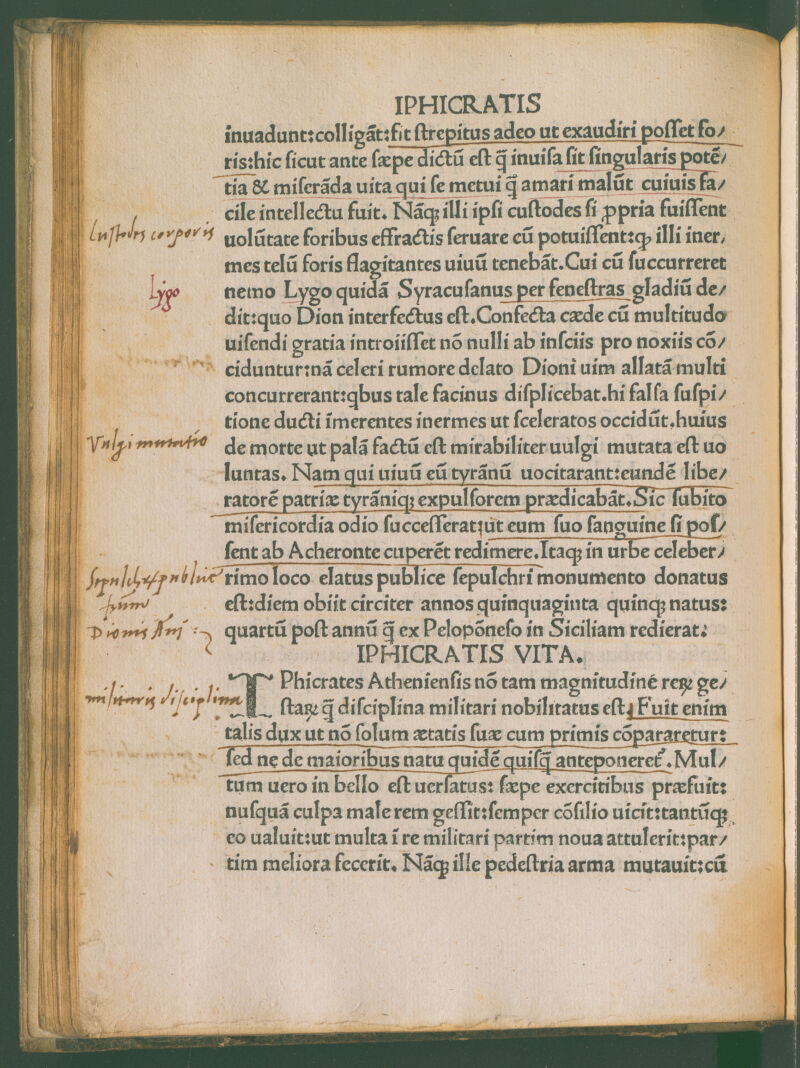 IPHICRATIS
inuadunt:colligãt:fit ſtrepitus adeo ut exaudiri poſſet fo/
ris:hic ſicut ante ſæpe dictũ eſt q̃ inuiſa ſit ſingularis potẽ/
tia & miſerãda uita qui ſe metui q̃ amari malũt cuiuis fa/
cile intellectu fuit. Nãq; illi ipſi cuſtodes ſi ꝓpria fuiſſent
uolũtate foribus effractis ſeruare cũ potuiſſent:ꝙ illi iner,
mes telũ foris flagitantes uiuũ tenebãt.Cui cũ ſuccurreret
Lygo
nemo Lygo quidã Syracuſanus per feneſtras gladiũ de/
dit:quo Dion interfectus eſt.Confecta cæde cũ multitudo
uiſendi gratia introiiſſet nõ nulli ab inſciis pro noxiis cõ/
ciduntur:nã celeri rumore delato Dioni uim allatã multi
concurrerant:qbus tale facinus diſplicebat.hi falſa ſuſpi/
tione ducti ĩmerentes inermes ut ſceleratos occidũt.huius
Vulgi mutatio
de morte ut palã factũ eſt mirabiliter uulgi mutata eſt uo
luntas. Nam qui uiuũ eũ tyrãnũ uocitarant:eundẽ libe/
ratorẽ patriæ tyrãniq; expulſorem prædicabãt.Sic ſubito
miſericordia odio ſucceſſerat:ut eum ſuo ſanguine ſi poſ/
ſent ab Acheronte cuperẽt redimere.Itaq; in urbe celeber/
rimo loco elatus publice ſepulchri monumento donatus
eſt:diem obiit circiter annos quinquaginta quinq; natus:
Dionis
quartũ poſt annũ q̃ ex Pelopõneſo in Siciliam redierat.
IPHICRATIS VITA.
militaris disciplina
IPhicrates Athenienſis nõ tam magnitudinẽ reꝝ ge/
ſtaꝝ q̃ diſciplina militari nobilitatus eſt. Fuit enim
talis dux ut nõ ſolum ætatis ſuæ cum primis cõpararetur:
ſed ne de maioribus natu quidẽ quiſq̃ anteponeret᷑.Mul/
tum uero in bello eſt uerſatus: ſæpe exercitibus præfuit:
nuſquã culpa male rem geſſit:ſemper cõſilio uicit:tantũq;
eo ualuit:ut multa ĩ re militari partim noua attulerit:par/
tim meliora fecerit. Nãq; ille pedeſtria arma mutauit:cũ